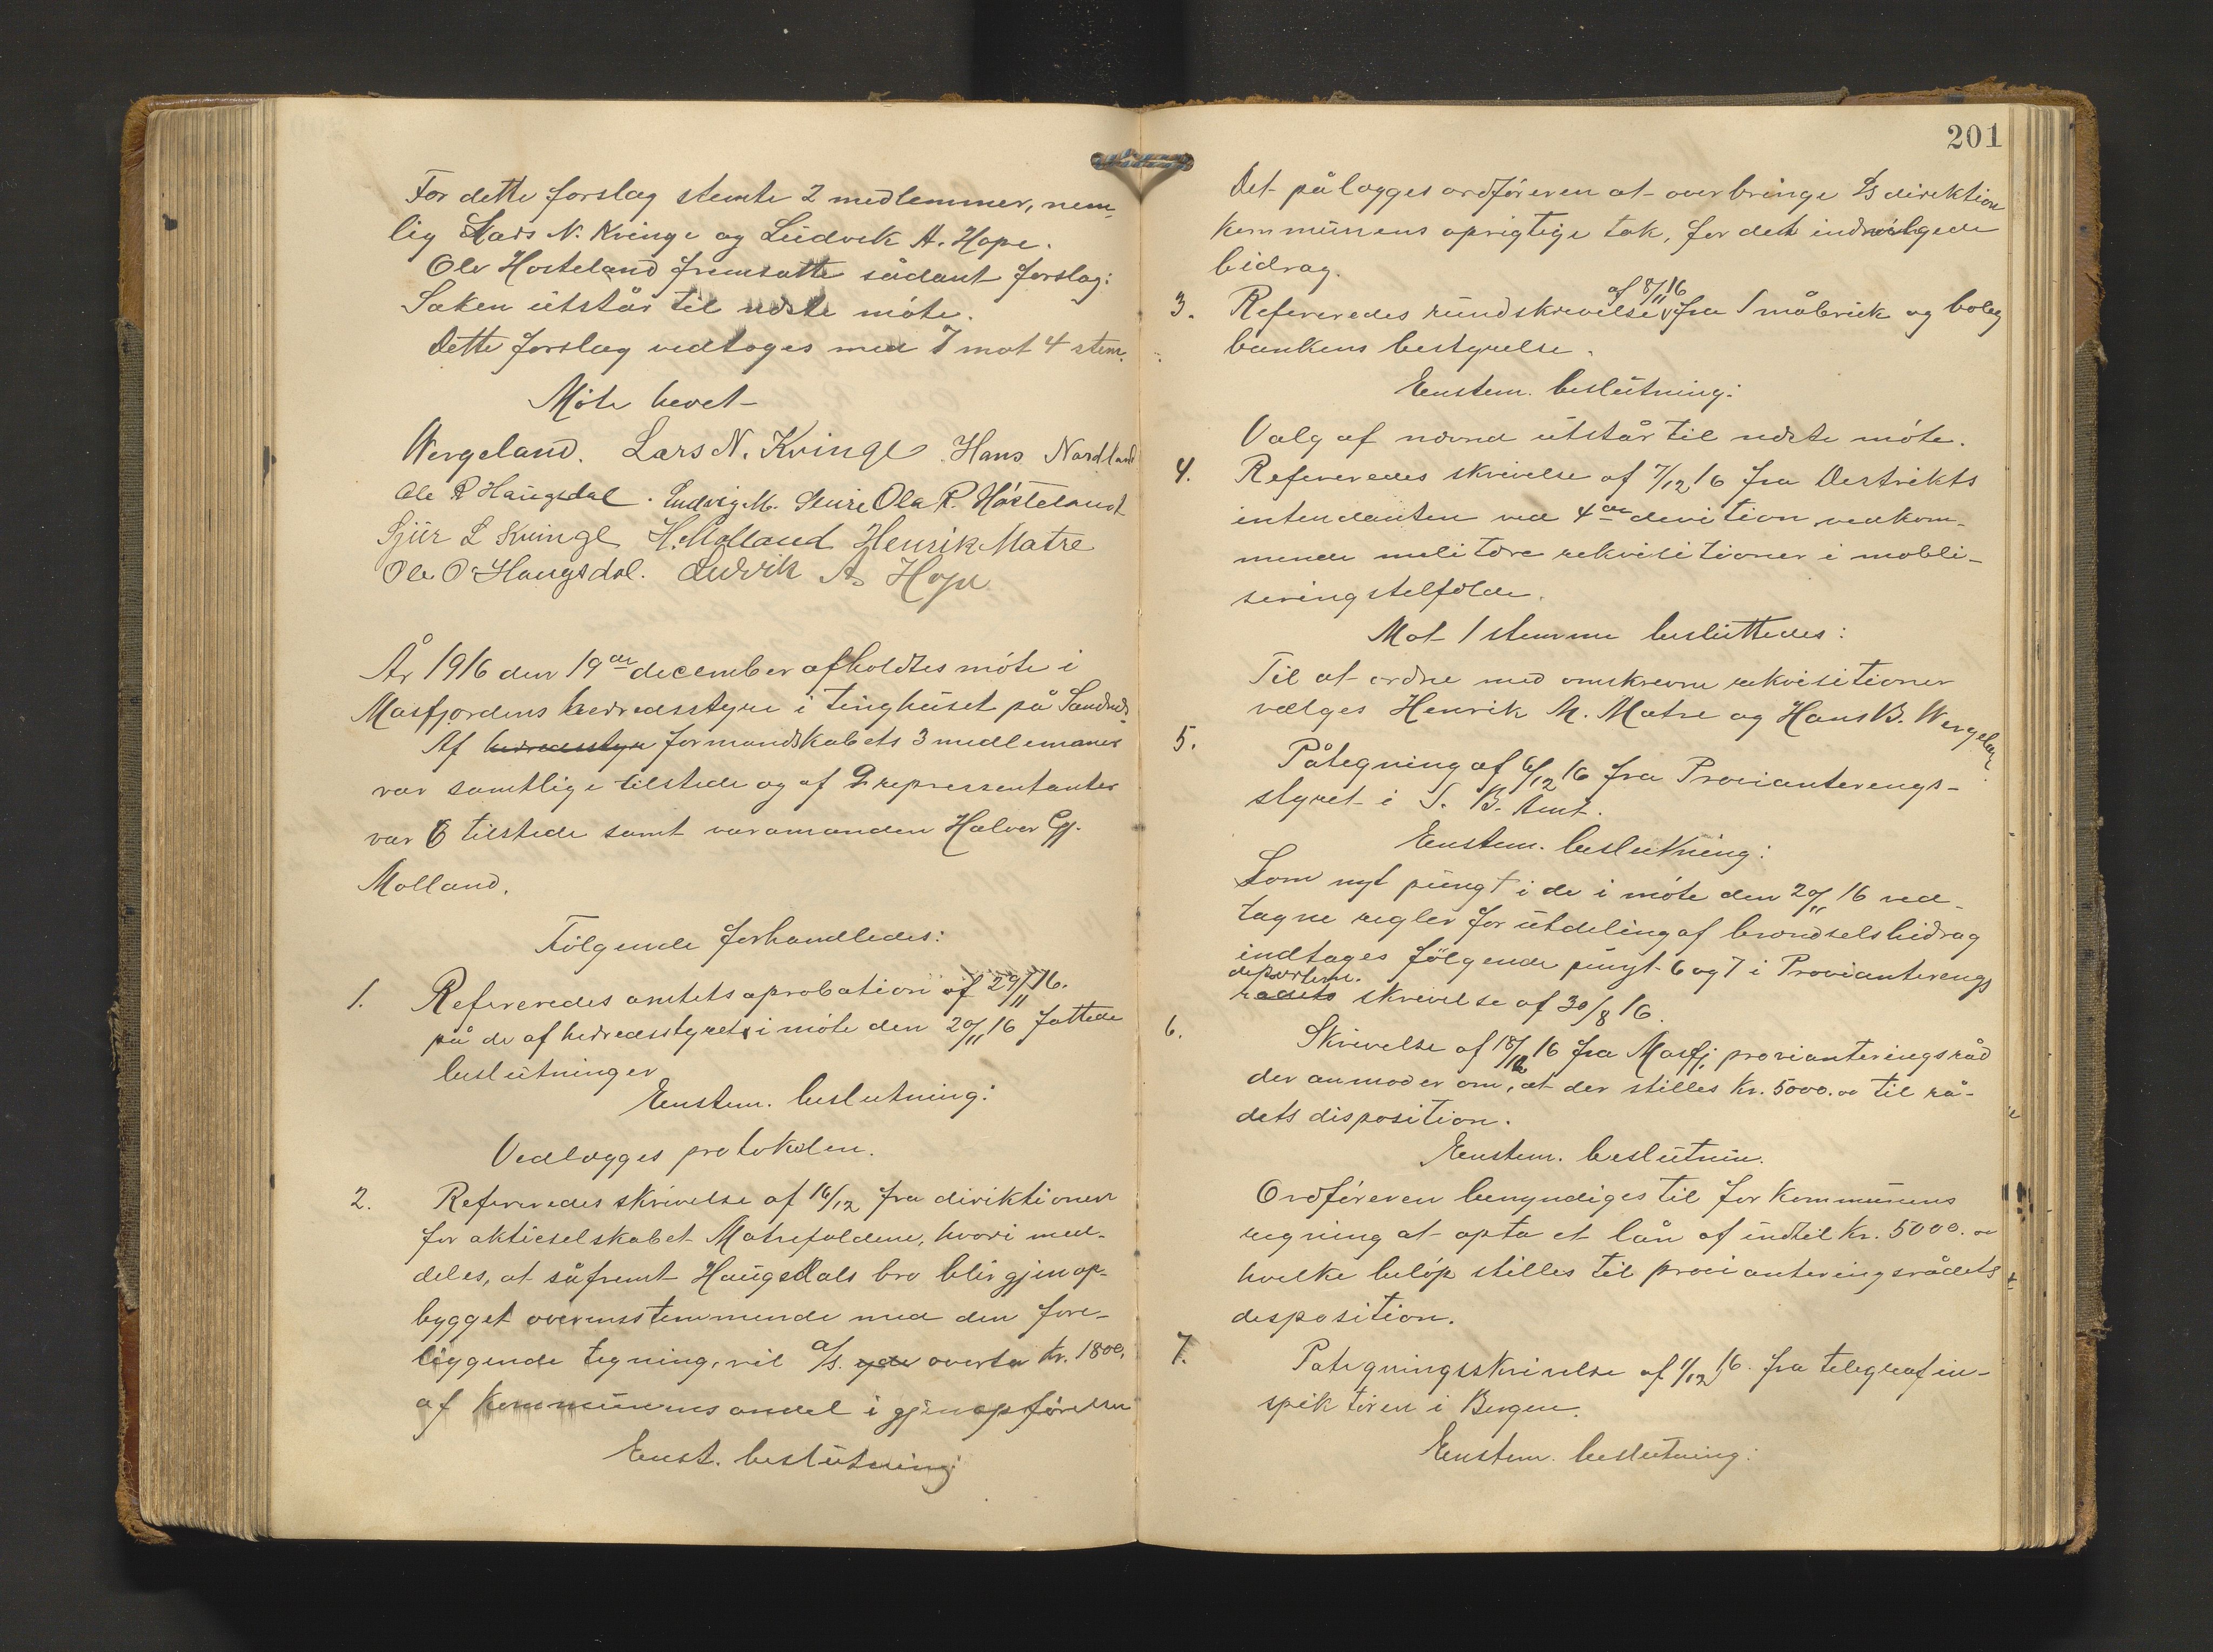 For dette forslag stemte 2 medlemmer, nem-
lig Lars N. Kvinge og Ludvik A. Hope.
Ole Hosteland fremsatte sådant forslag:
Saken utstår til næste møte.
Dette forslag vedtoges med 7 mot 4 stem.
Møte hevet
Wergeland. Lars N. Kvinge Hans Nordland
Ole R Haugsdal. Ludvig M. Ola R. Hosteland
Sjur L Kvinge H. Molland Henrik Matre
Ole O Haugsdal. Ludvik A. Hope
År 1916 den 19de december afholdtes møte i
Masfjordens herredsstyre i tinghuset på Sandnes
Af herredsstyre formandskabets 3 medlemmer
var samtlige tilstede og af 9 repressentanter
var 6 tilstede samt varamanden Halvor Gj.
Molland.
Følgende forhandledes:
1. Refereredes amtets aprobation af 29/11 16.
på de af herredsstyret i møte den 20/11 16 fattede
beslutninger
Enstem. beslutning:
Vedlægges protokolen.
2. Refereredes skrivelse af 16/12 fra direktionen
for aktieselskabet Matrefaldene, hvori med-
deles, at såfremt Haugsdals bro blir gjenop-
bygget overensstemmende med den fore-
liggende tegning, vil a/s. yde overta kr. 1800,
af kommunens andel i gjenopførelsen
Enst. beslutning
201
Det pålægges ordføreren at overbringe a/s direktion
kommunens oprigtige tak, for det indvilgede
bidrag.
af 8/11 16
3. Refereredes rundskrivelse fra Småbruk og bolig
bankens bestyrelse.
Enstem. beslutning:
Valg af nævnd utstår til næste møte.
4. Refereredes skrivelse af 7/12 16 fra Destrikts
intendanten ved 4de devition vedkom-
mende melitære rekvisitioner i mobli-
seringstelfælde.
Mot 1 stemme besluttedes:
Til at ordne med omskrevne rekvisitioner
vælges Henrik M. Matre og Hans B. Wergeland
5. Påtegning af 6/12 16 fra Provianterengs-
styret i S. B. Amt.
Enstem. beslutning:
Som nyt pungt i de i møte den 20/11 16 ved-
tagne regler for utdeling af brændselsbidrag
indtages følgende pungt 6 og 7 i Provianterengs
departem.
radets skrivelse af 30/8 16.
6. Skrivelse af 18/12 16 fra Masfj. provianteringsråd
der anmoder om, at der stilles kr. 5000.00 til rå-
dets disposition.
Enstem. beslutnin.
Ordføreren bemyndiges til for kommunens
regning at opta et lån af indtil kr. 5000.00
hvelke beløp stilles til provianteringsrådets
desposition.
7. Påtegningsskrivelse af 1/12 16. fra telegrafin-
spektøren i Bergen.
Enstem. beslutning: